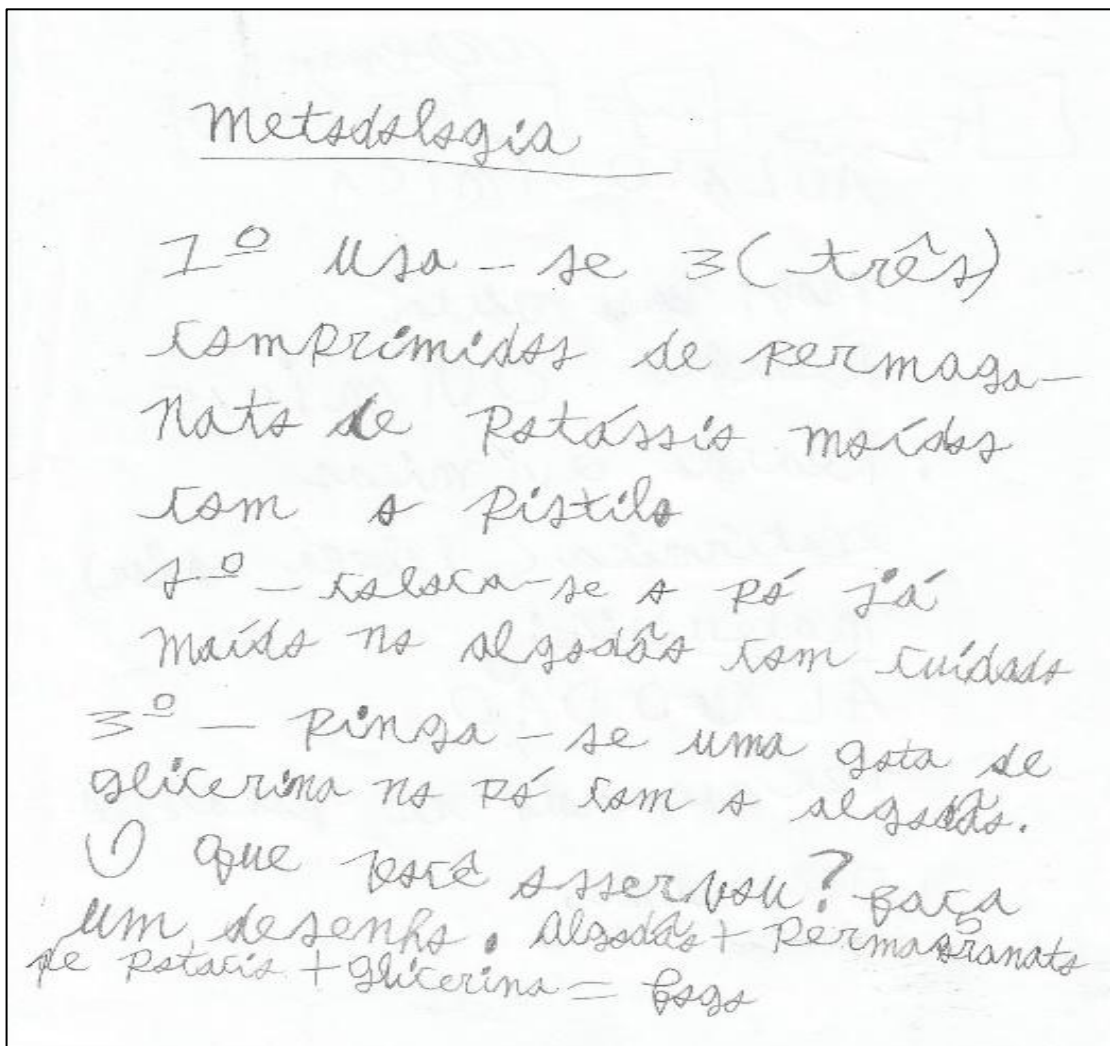 Metodologia
1º usa-se 3 (três)
comprimidos de permaga-
nato de Potássio moídos
com o Pistilo
2º - coloca-se o pó já
moído no algodão com cuidado
3º - Pinga-se uma gota de
glicerina no pó com o algodão.
O que você osservou? Faça
um desenho. Algodão + Permagranato
de Potacio + glicerina = fogo